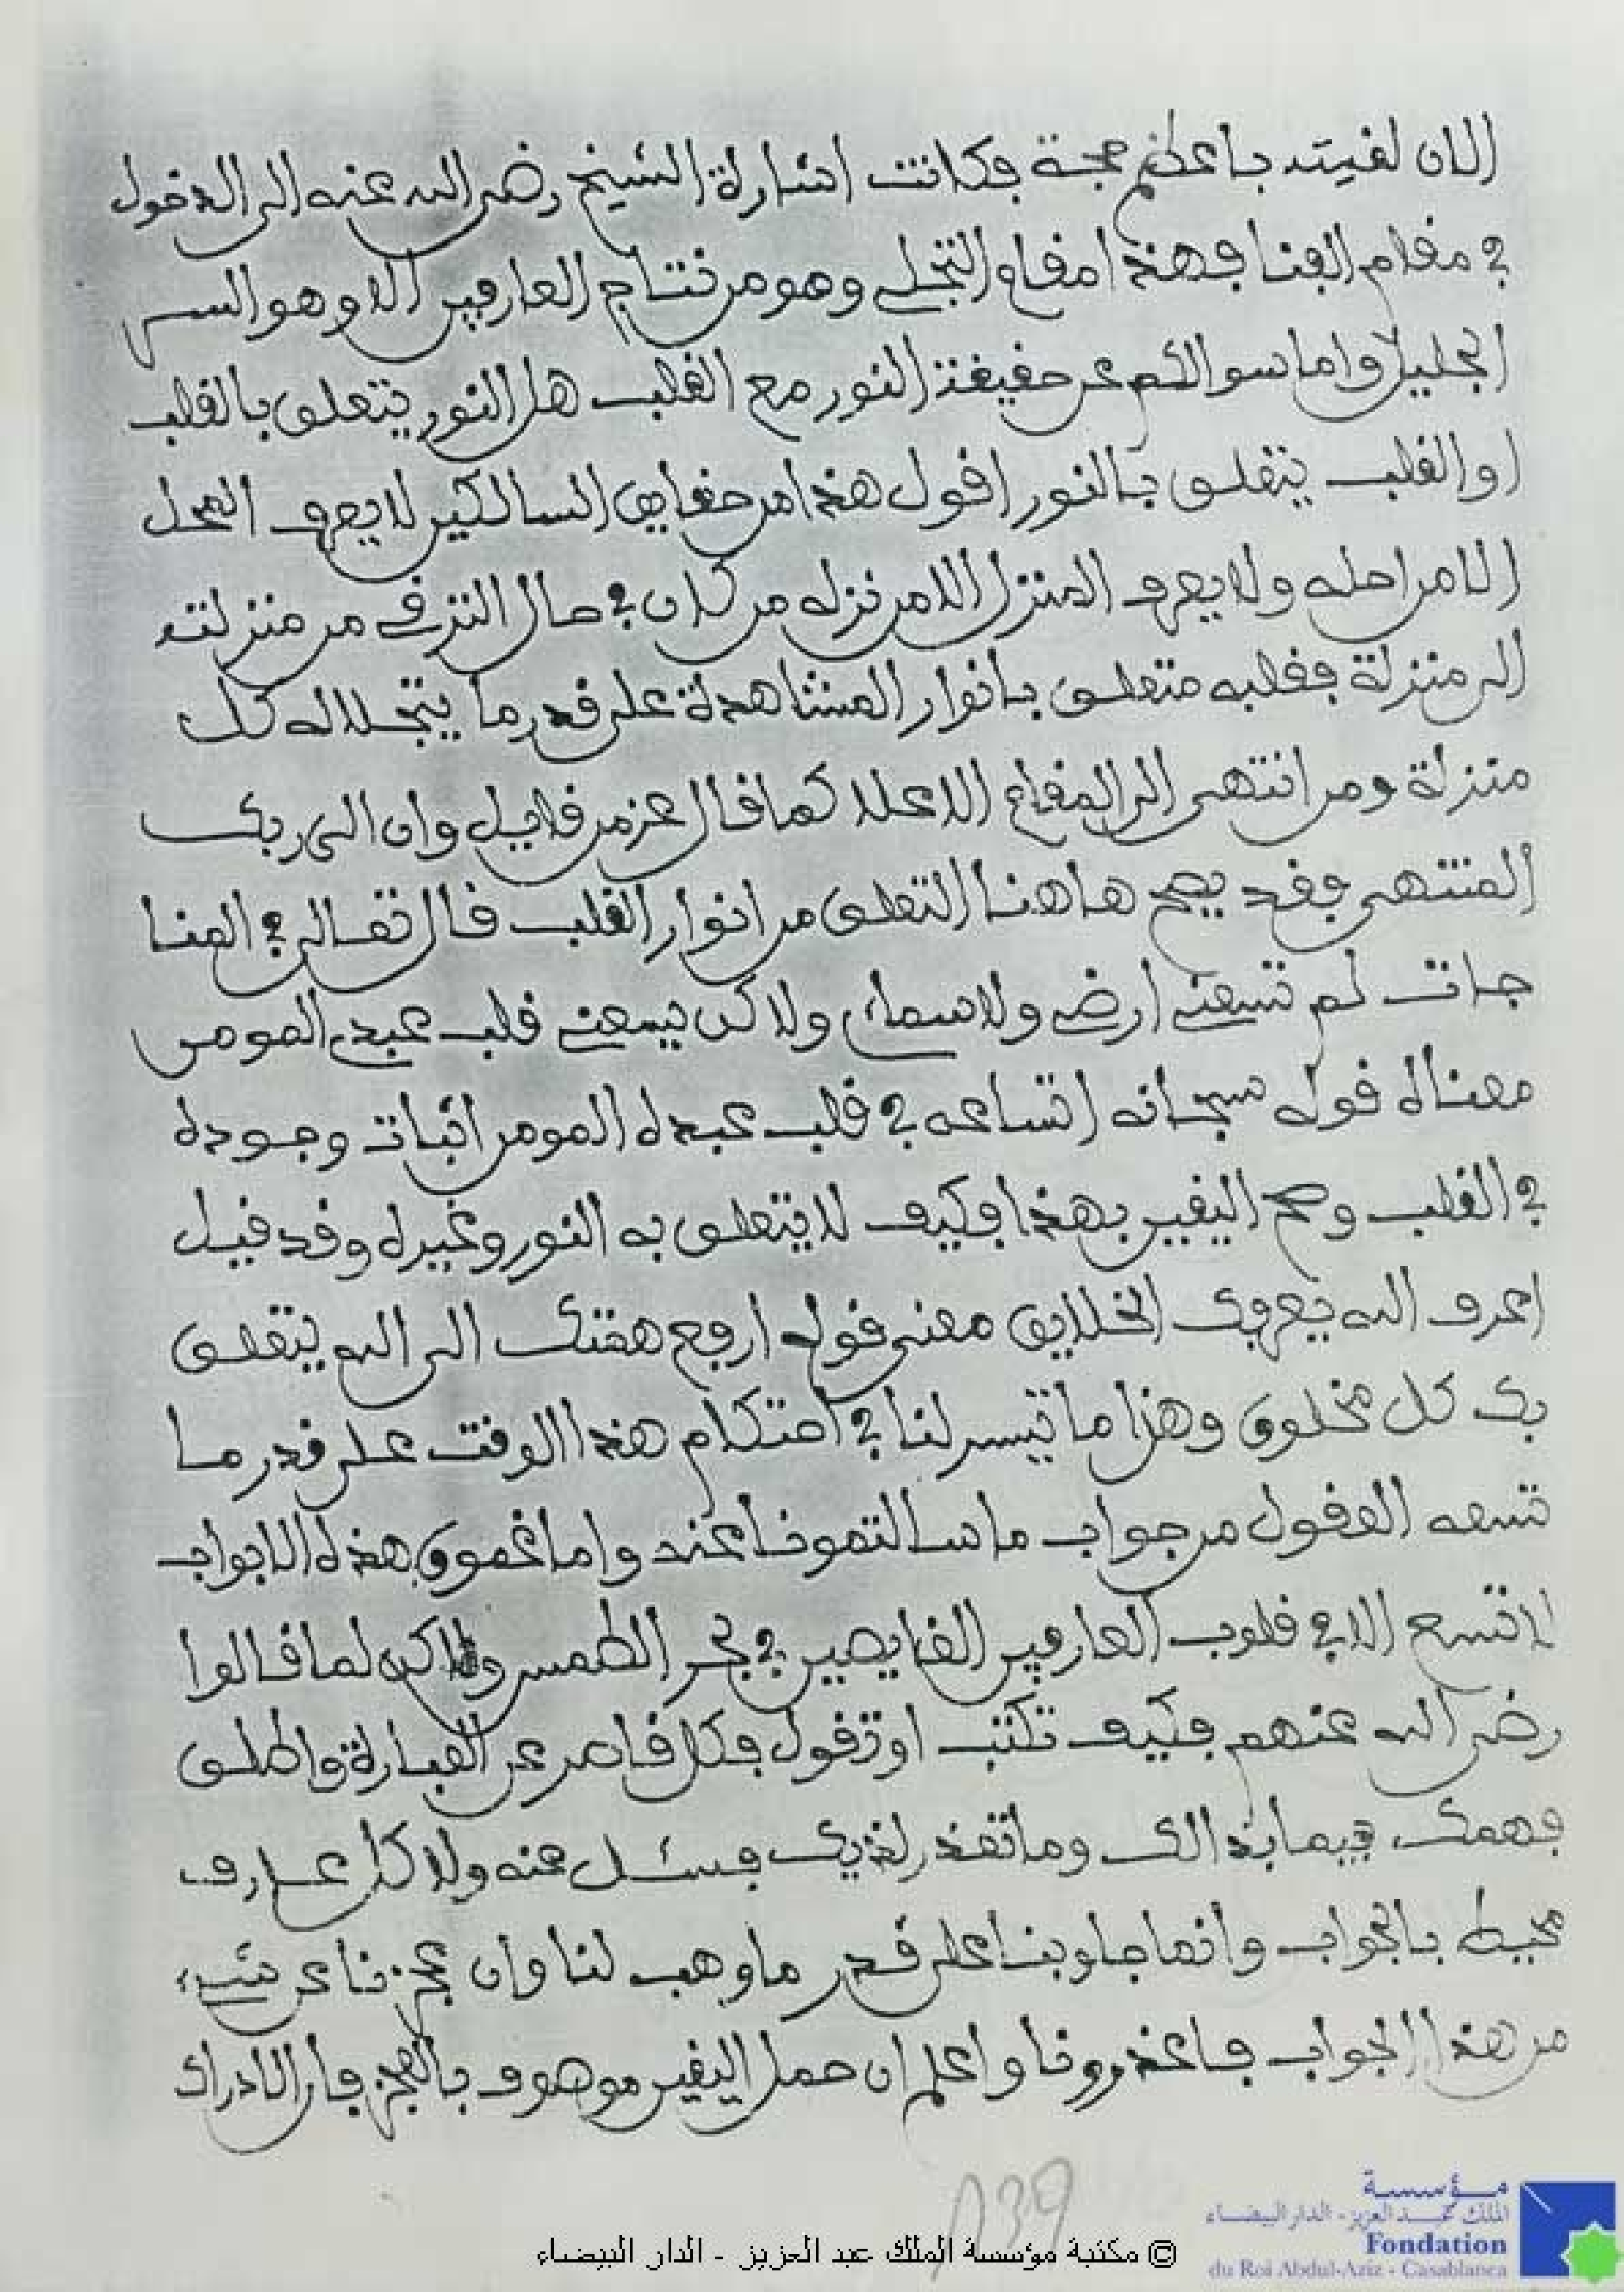 الان لقيته باعظم محبة فكانت اشارة الشيخ رضي الله عنه الى الدخول
في مقام الفنا فهذا مقام التجلي وهو من نتاج العارفين الا وهو السر
الجليل واما سوالكم عن حقيقة النور مع القلب هل النور يتعلق بالقلب
او القلب يتعلق بالنور اقول هذا من حقايق السالكين لا يعرف المحل
الا من احله ولا يعرف المنزل الا من نزله من كان في حال الترقي من منزلته
الى منزلة فقلبه متعلق بانوار المشاهدة على قدر ما يتجلا له كل
منزلة ومن انتهى الى المقام الاعلا كما قال عز من قايل وان الى ربك
المنتهى فقد يصح هاهنا التعلق من انوار القلب قال تعالى في المنا
جات لم تسعني ارضي ولا سماءي ولاكن يسعني قلب عبدي المومن
معناه قوله سبحانه اتساعه في قلب عبده المومن اثبات وجوده
في القلب وصح اليقين بهذا فكيف لا يتعلق به النور وغيره وقد قيل
اعرف الله يعرفك الخلايق معنى قوله ارفع همتك الى الله يتعلق
بك كل مخلوق وهذا ما تيسر لنا في احتكام هذا الوقت على قدر ما
تسعه العقول من جواب ما سالتمونا عنه واما غموق هذه الابواب
لا تسع الا في قلوب العارفين الغايصين في بحر الطمس ولاكن لما قالوا
رضي الله عنهم فكيف تكتب او تقول فكل قاصر عن العبارة واطلق
فهمك فيما بذالك وما تعذر لذيك فسئل عنه ولا كل عارف
محيط بالجواب وانما جاوبنا على قدر ما وهب لنا وان عجزنا عن شيء
من هذا الجواب فاعذرونا واعلم ان حمل اليقين موهوف بالعجز فان الادراك
139
© مكتبة مؤسسة الملك عبد العزيز - الدار البيضاء
مؤسسة
الملك عبد العزيز - الدار البيضاء
Fondation
du Roi Abdul-Aziz - Casablanca